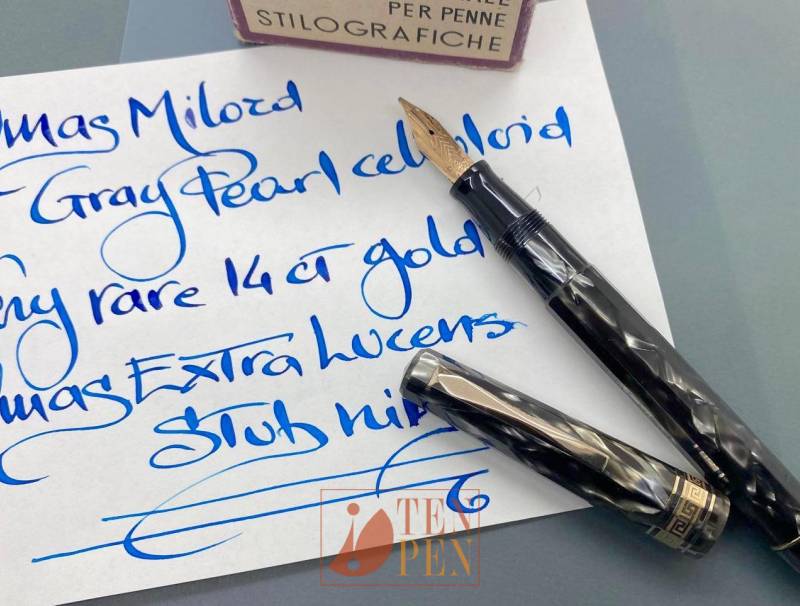 PER PENNE
STILOGRAFICHE
mas Milord
Gray Pearl celluloid
rare 14 ct gold
mas Extra Lucens
Stub
TEN
PEN